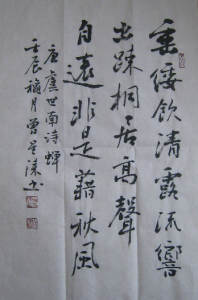 垂緌飲清露流響
出疎桐居高聲
自遠非是藉秋風
唐虞世南诗蝉
壬辰穐月曾